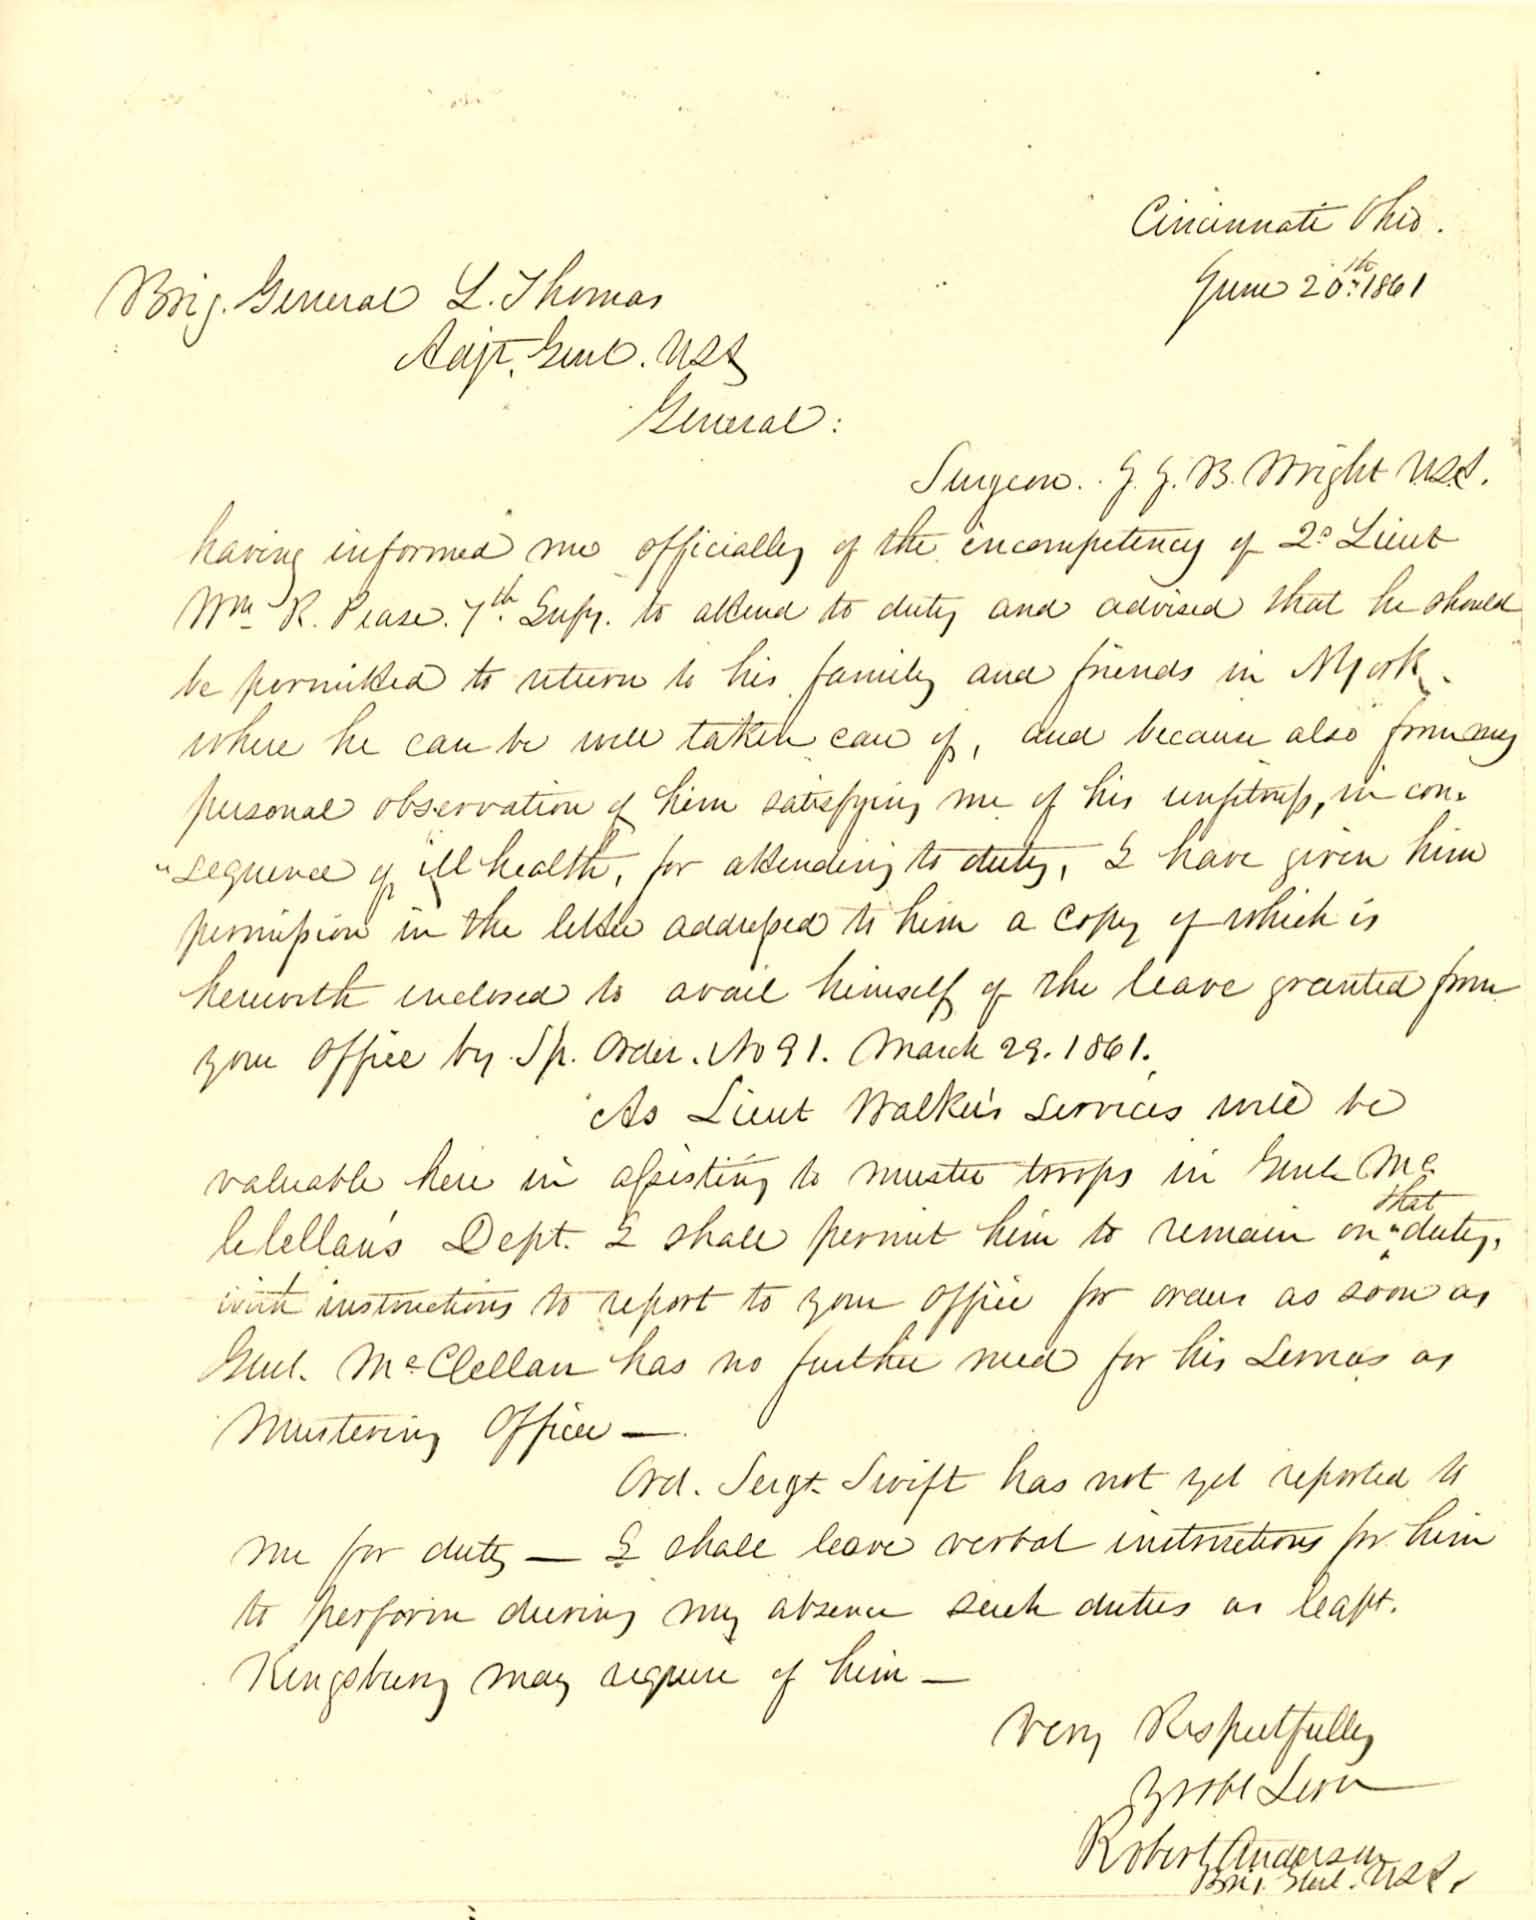 Cincinnati Ohio.
June 20th. 1861
Brig. General L. Thomas
Adjt. Genl. USA
General:
Surgeon. J. J. B. Wright USA.
having informed me officially of the incompetency of 2d Lieut
Wm R. Pease. 7th. Infy. to attend to duty and advised that he should
be permitted to return to his family and friends in NYork,
where he can be well taken care of, and because also from my
personal observation of him satisfying me of his unfitness, in con-
"sequence of ill health, for attending to duty, I have given him
permission in the letter addressed to him a copy of which is
herewith inclosed to avail himself of the leave granted from
your office by Sp. Order. No 91. March 29. 1861.
As Lieut Walker's services will be
valuable here in assisting to muster troops in Genl Mc
Clellan's Dept. I shall permit him to remain on that duty,
with instructions to report to your office for orders as soon as
Genl. McClellan has no further need for his services as
Mustering Officer —
Ord. Sergt. Swift has not yet reported to
me for duty — I shall leave verbal instructions for him
to perform during my absence such duties as Capt.
Kingsbury may require of him —
Very Respectfully
Yr obt Servt
Robert Anderson
Brig. Genl. USA.